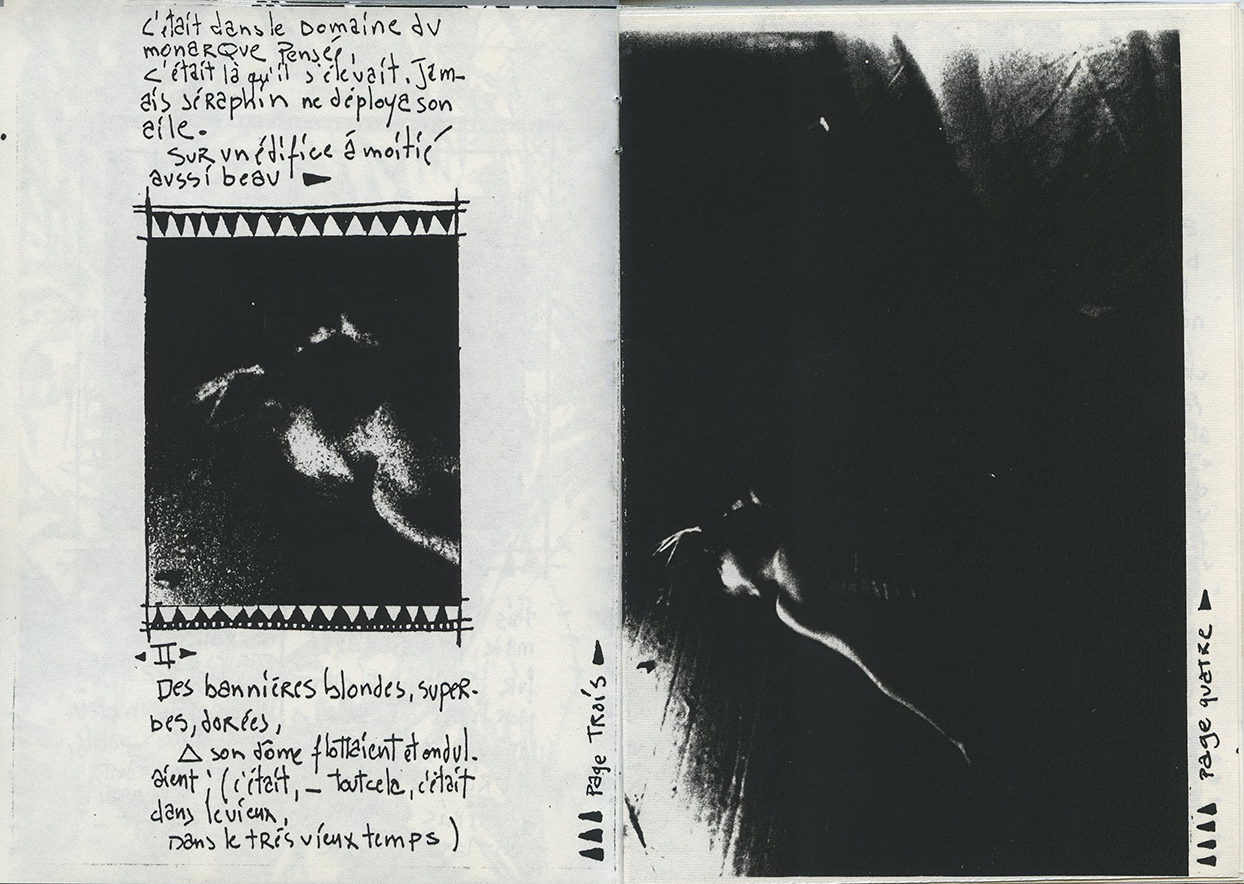 C'était dans le Domaine du
monarque Pensée,
c'était là qu'il s'élevait. Jam-
ais séraphin ne déploya son
aile.
Sur un édifice à moitié
aussi beau
II
Des bannières blondes, super-
bes, dorées,
À son dôme flottaient et ondul-
aient ; (c'était, — tout cela, c'était
dans le vieux,
Dans le très vieux temps)
Page Trois
page quatre